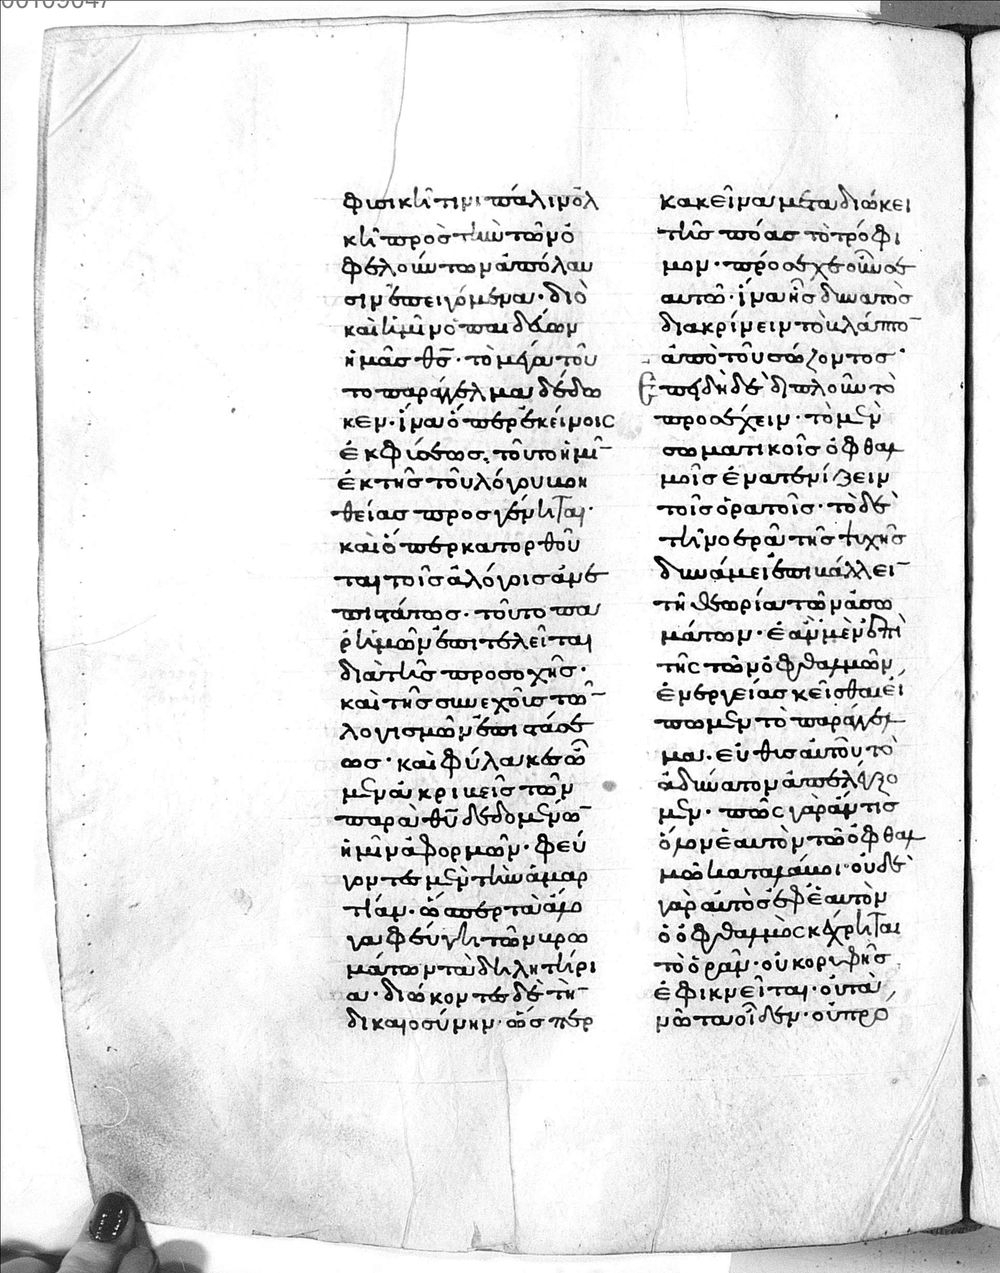 φυσικῆ τινι πάλιν ὁλ
κῆ πρὸς τὴν τῶν ὀ
φελούντων ἀπόλαυ
σιν ἐπειγόμενα· διὸ
καὶ ἡμῖν ὁ παιδεύων
ἡμᾶς θς· τὸ μέγα τοῦ
το παράγγελμα δέδω
κεν· ἵνα ὅπερ ἐκείνοις
ἐκ φύσεως, τοῦτο ἡμῖ
ἐκ τῆς τοῦ λόγου βοη
θείας προσγένηται·
καὶ ὅπερ κατορθοῦ
ται τοῖς ἀλόγοις ἀνε
πιστάτως· τοῦτο πα
ρ ἡμῶν ἐπιτελεῖται
διὰ τῆς προσοχῆς·
καὶ τῆς συνεχοῦς τῶ
λογισμῶν ἐπιστάσε
ως· καὶ φύλακες ὦ
μεν ἀκριβεῖς τῶν
παρὰ θυ δεδομένω
ἡμῖν ἀφορμῶν· φεύ
γοντες μὲν τὴν ἁμαρ
τίαν· ὥσπερ τὰ ἄλο
γα φεύγει τῶν βρω
μάτων τὰ δηλητήρι
α· διώκοντες δὲ τὴ
δικαιοσύνην· ὥσπερ
κακεῖνα μεταδιώκει
τῆς πόας τὸ τρόφι
μον· πρόσεχε οὖν σε
αυτῶ· ἵνα ῆς δυνατὸς
διακρίνειν τὸ βλάπτο
ἀπὸ τοῦ σώζοντος·
Ἐπειδὴ δὲ διπλοῦν τὸ
προσέχειν· τὸ μὲν
σωματικοῖς ὀφθαλ
μοῖς ἐνατενίζειν
τοῖς ὁρατοῖς· τὸ δὲ
τῆ νοερᾶ τῆς ψυχῆς
δυνάμει ἐπιβάλλει
τῆ θεωρία τῶν ἀσω
μάτων· ἐὰν μὲν ἐπὶ
τῆς τῶν ὀφθαλμῶν
ἐνεργείας κεῖσθαι εἴ
πωμεν τὸ παράγγελ
μα· εὐθὺς αὐτοῦ τὸ
ἀδύνατον ἀπελέγξο
μεν· πῶς γὰρ ἄν τις
ὅλον ἑαυτὸν τῶ ὀφθαλ
μῶ καταλάβοι· οὐδὲ
γὰρ αὐτὸς ἐφ ἑαυτὸν
ὁ ὀφθαλμὸς κέχρηται
τὸ ὁρᾶν· οὐ κορυφῆς
ἐφικνεῖται· οὐ τὰ
νῶτα οἶδεν· οὐ προ